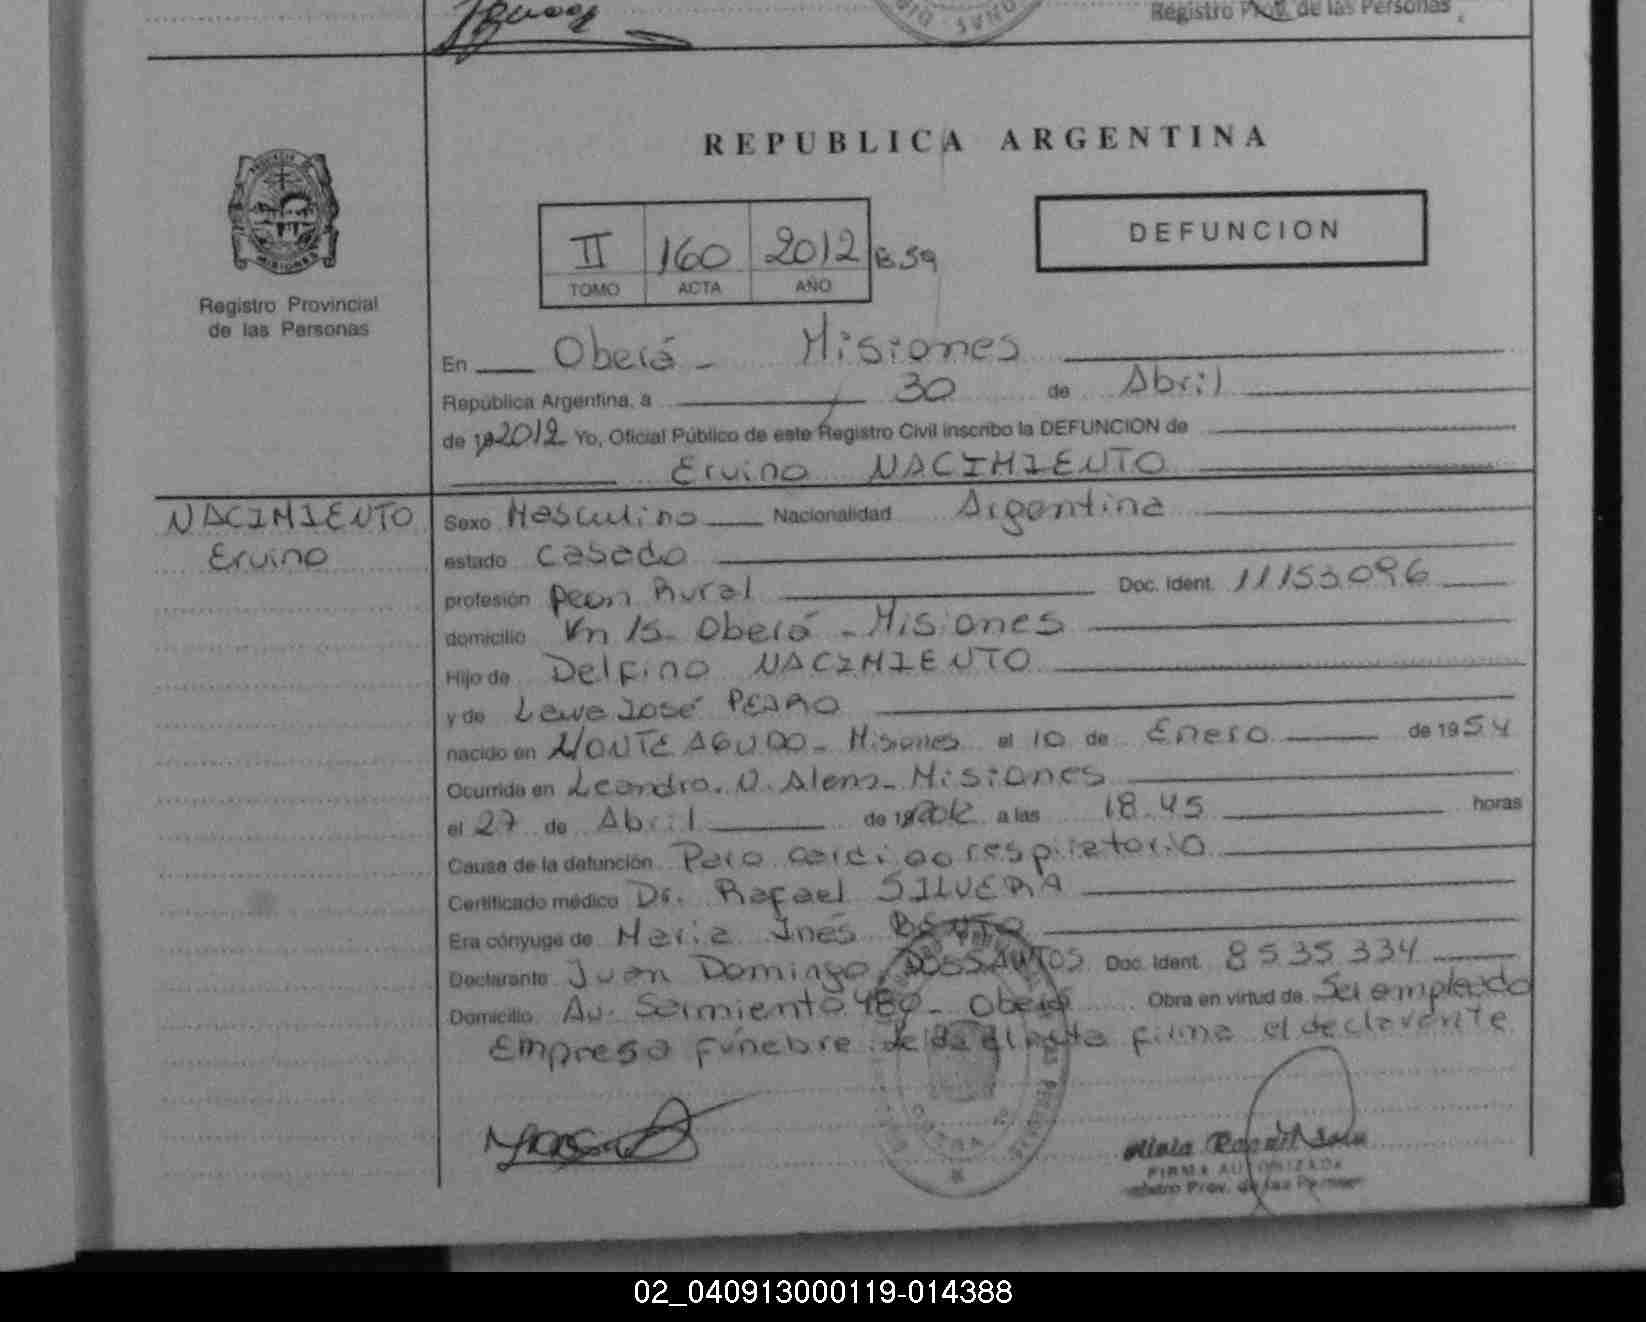 Registro Prov. de las Personas
REPUBLICA ARGENTINA
II 160 2012 B 59
TOMO ACTA AÑO
DEFUNCION
MISIONES
Registro Provincial
de las Personas
En Oberá - Misiones
República Argentina, a 30 de Abril
de 192012 Yo, Oficial Público de este Registro Civil inscribo la DEFUNCION de
Ervino NACIMIENTO
NACIMIENTO
Ervino
Sexo Masculino Nacionalidad Argentina
estado casado
profesión peon Rural Doc. Ident. 11153.096
domicilio Km 15 - Oberá - Misiones
Hijo de Delfino NACIMIENTO
y de José PEDRO
nacido en MONTEAGUDO - Misiones el 10 de Enero de 1954
Ocurrida en Leandro. N. Alem - Misiones
el 27 de Abril de 192012 a las 18.45 horas
Causa de la defunción Paro cardiaco respiratorio
Certificado médico Dr. Rafael SILVERA
Era cónyuge de Maria Inés
Declarante Juan Domingo DOSSANTOS Doc. Ident. 8535334
Domicilio Av. Sarmiento 480 - Oberá Obra en virtud de Ser empleado
Empresa fúnebre leida el acta firma el declarante
FIRMA AUTORIZADA
Registro Prov. de las Personas
02_040913000119-014388